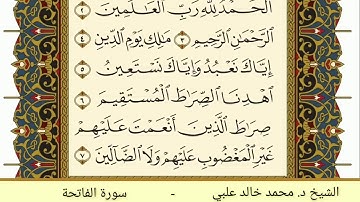 ٱلۡحَمۡدُ لِلَّهِ رَبِّ ٱلۡعَٰلَمِينَ ٢
ٱلرَّحۡمَٰنِ ٱلرَّحِيمِ ٣ مَٰلِكِ يَوۡمِ ٱلدِّينِ ٤
إِيَّاكَ نَعۡبُدُ وَإِيَّاكَ نَسۡتَعِينُ ٥
ٱهۡدِنَا ٱلصِّرَٰطَ ٱلۡمُسۡتَقِيمَ ٦
صِرَٰطَ ٱلَّذِينَ أَنۡعَمۡتَ عَلَيۡهِمۡ
غَيۡرِ ٱلۡمَغۡضُوبِ عَلَيۡهِمۡ وَلَا ٱلضَّآلِّينَ ٧
الشيخ د. محمد خالد علبي - سورة الفاتحة